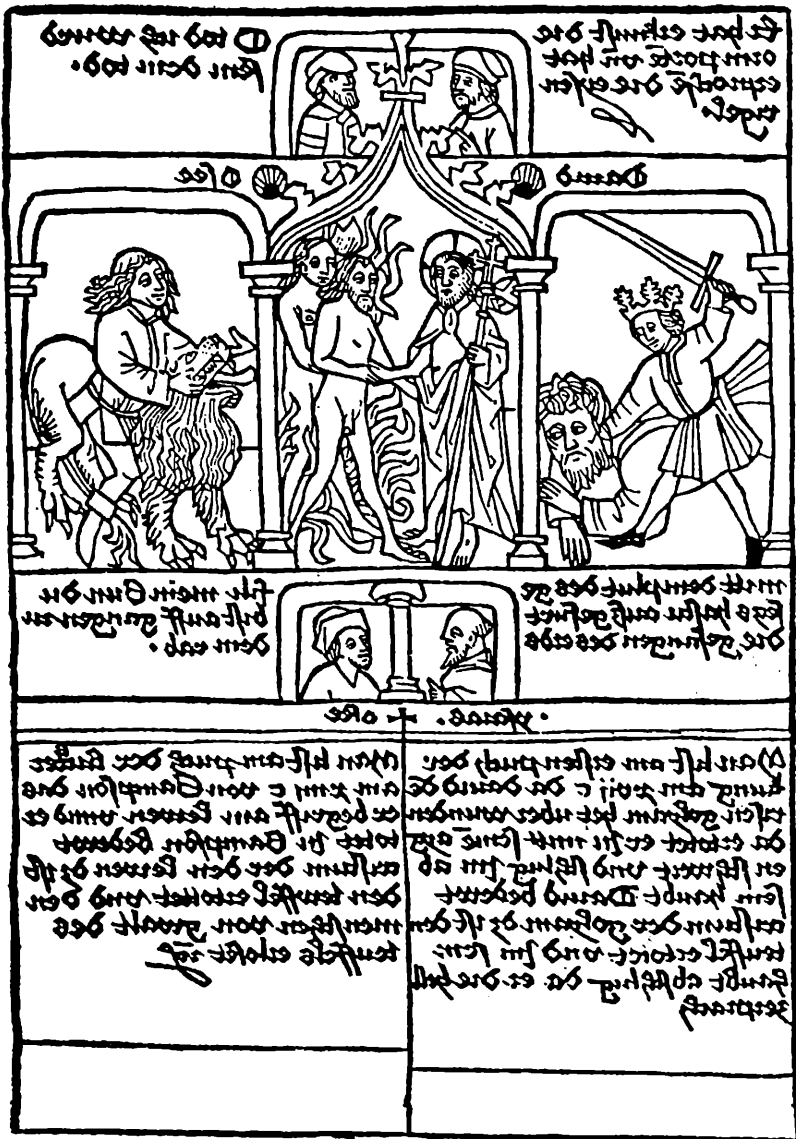 Er hat die
orn porte vn hat
die eysen
rigel.
O tod ich wird
sein dein tod.
Dauid
Osee
mitt dem plut des ge
hastu auß gefürt
die gefangen des
Sih mein Sun du
bist auff gangen zu
dem rab.
ysaias.
Man list am ersten puch der
kunig am xvij c da dauid dē
risen goliam het uber wunden
da ertotet er jn mitt seinē ayg
en schwert vnd schlug jm ab
sein haubt Dauid bedewt
cristum der goliam dz ist den
teuffel ertotet vnd jm sein
haubt abschlug da er die hell
zerprach
Man list am puch der Richter
am xiiij c von Sampson das
er begriff ain lewen vnnd er
totet jn Sampson bedewt
cristum der den lewen dz ist
den teuffel ertottet vnd den
menschen von gwalt des
teuffels erlost